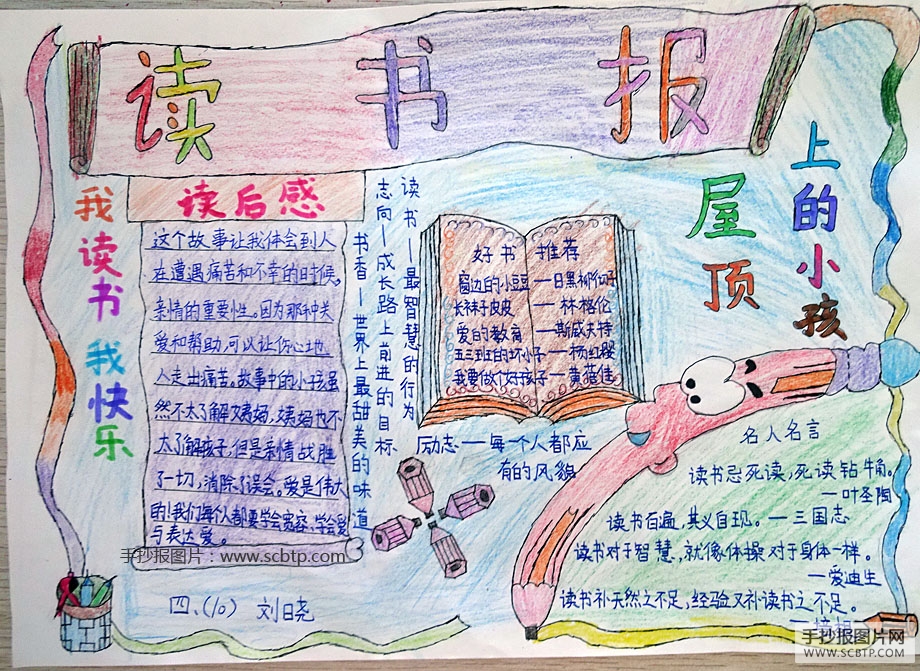 读书报
我读书 我快乐
读后感
这个故事让我体会到人
在遭遇痛苦和不幸的时候,
亲情的重要性。因为那种关
爱和帮助,可以让你心地
人走出痛苦。故事中的小孩虽
然不太了解姨妈,姨妈也不
太了解孩子,但是亲情战胜
了一切,消除了误会。爱是伟大
的!我们每个人都要学会宽容,学会爱
与表达爱。
四、(10) 刘日尧
读书—最智慧的行为
志向—成长路上前进的目标
书香—世界上最甜美的味道
好书 推荐
窗边的小豆豆—日黑柳彻子
长袜子皮皮—林格伦
爱的教育—斯威夫特
五三班的坏小子—杨红樱
我要做个好孩子—黄蓓佳
励志—每一个人都应
有的风貌
屋顶
上的小孩
名人名言
读书忌死读,死读钻牛角。
—叶圣陶
读书百遍,其义自现。—三国志
读书对于智慧,就像体操对于身体一样。
—爱迪生
读书补天然之不足,经验又补读书之不足。
手抄报图片:www.scbtp.com
手抄报图片网
WWW.SCBTP.COM